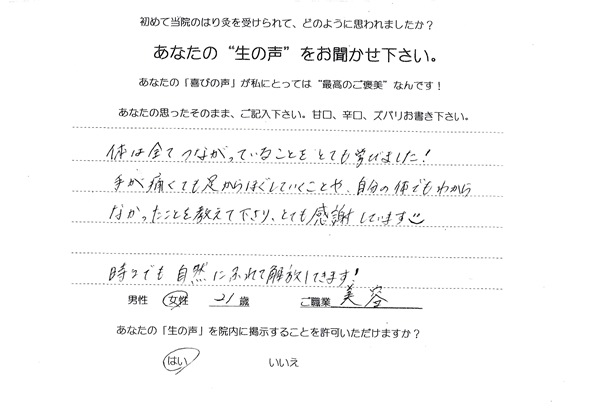 初めて当院のはり灸を受けられて、どのように思われましたか?
あなたの“生の声”をお聞かせ下さい。
あなたの「喜びの声」が私にとっては“最高のご褒美”なんです!
あなたの思ったそのまま、ご記入下さい。甘口、辛口、ズバリお書き下さい。
体は全てつながっていることをとても学びました!
手が痛くても足からほぐしていくことや、自分の体でもわから
なかったことを教えて下さり、とても感謝しています
時々でも自然にふれて解放してきます!
男性 女性 21歳 ご職業 美容
あなたの「生の声」を院内に掲示することを許可いただけますか?
はい いいえ